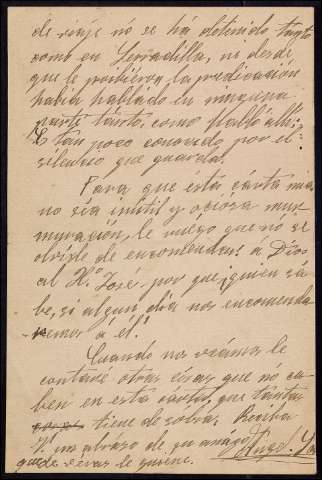 de viaje no se ha detenido tanto
como en Serradilla, ni desde
que le prohibieron la predicación
había hablado en ninguna
parte tanto, como habló allí.
Es tan poco conocido por el
silencio que guarda.
Para que esta carta mia
no sea inutil y ociosa mur-
muración, le ruego que no se
olvide de encomendar á Dios
al Hº José, por que, quien sa-
be, si algun día nos encomenda-
remos á él!
Cuando nos veamos le
contaré otras cosas que no ca-
ben en esta carta, que tantas
tiene de sobra. Reciba
V. un abrazo de su amigo
que de veras le quiere. Angel